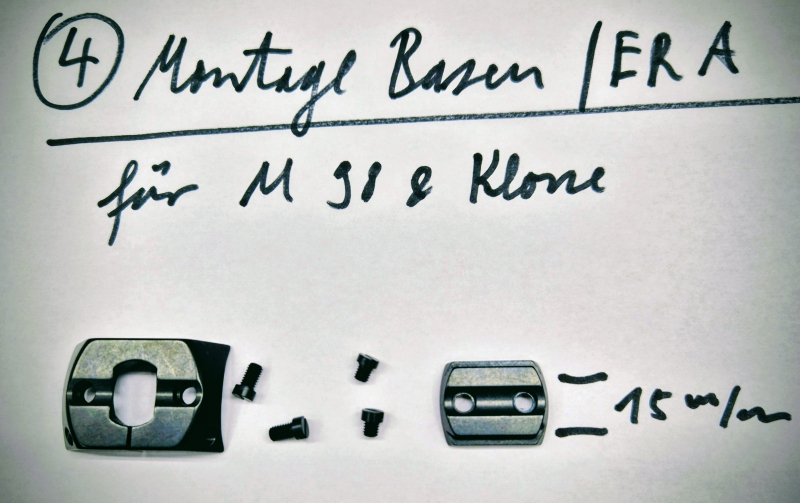 4 Montage Basen / ERA
für M 98 & Klone
15 m/m